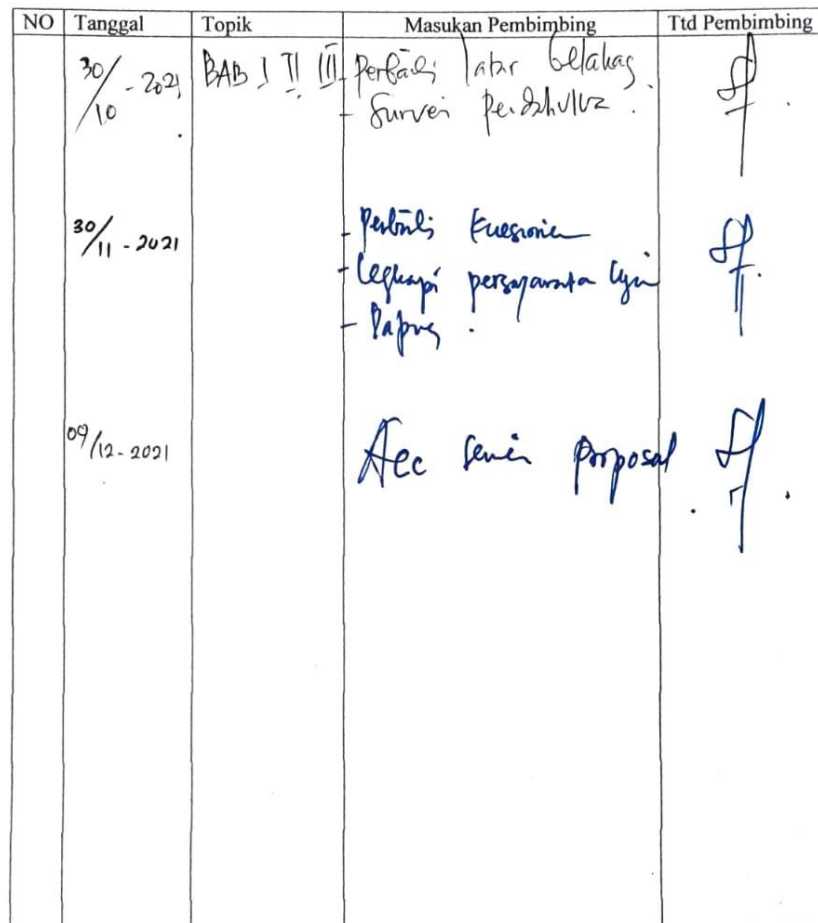 NO Tanggal Topik Masukan Pembimbing Ttd Pembimbing
30/10 - 2021 BAB I II III - Perbaiki latar belakang
- Survei pendahuluan.
30/11 - 2021 - Perbaiki kuesioner
- Lengkapi persyaratan
-
09/12 - 2021 Acc proposal